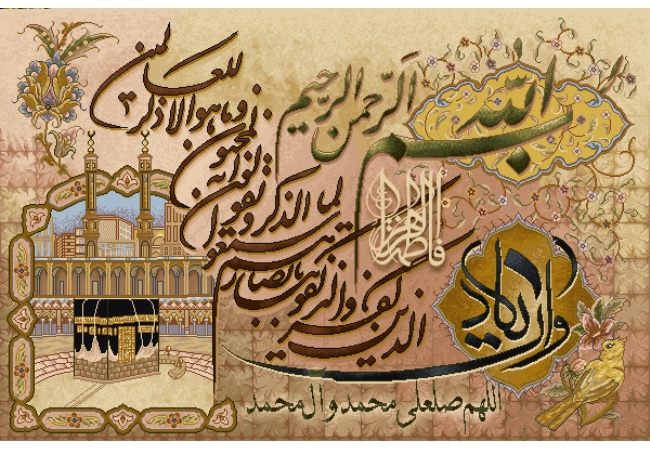 بسم الله الرحمن الرحیم
وان یکاد
الذین کفروا لیزلقونک بابصارهم
لما سمعوا الذکر و یقولون
انه لمجنون
و ما هو الا ذکر
للعالمین
فاطمة الزهرا
اللهم صلعلی محمد و آل محمد